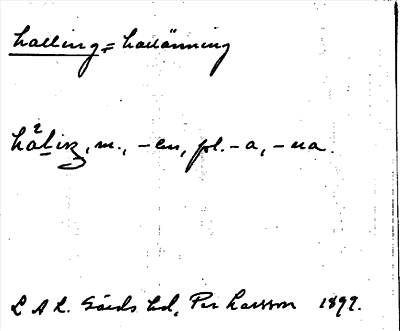 halling = hallänning
hàliŋ, m., -en, pl. -a, -na.
L A L. Gärds hd, Per Larsson 1897.